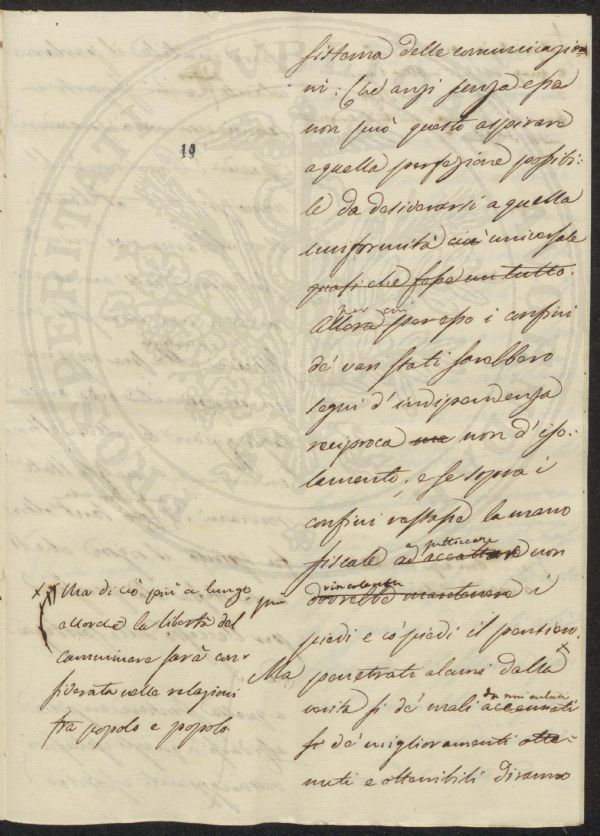 19
sistema delle comunicazio
ni: Ché anzi senza essa
non può questo aspirare
a quella perfezione possibi:
le da desiderarsi a quella
uniformità cioè universale
quasi che fosse un tutto.
per cui
Allora spesso i confini
de' varj stati sarebbero
segni d'indipendenza
reciproca ma non d'iso:
lamento, e se sopra i
confini restasse la mano
a
fiscale ad non
vincolerebbe
più dovrebbe mantenere i
piedi e co' piedi il pensiero.
Ma penetrati alcuni dalla
da noi
verità sì de' mali accennati
sì de' miglioramenti otte-
nuti e ottenibili diranno
Ma di ciò più a lungo
allorché la libertà del
camminare sarà con
siderata nelle relazioni
fra popolo e popolo
PROSPERITATI